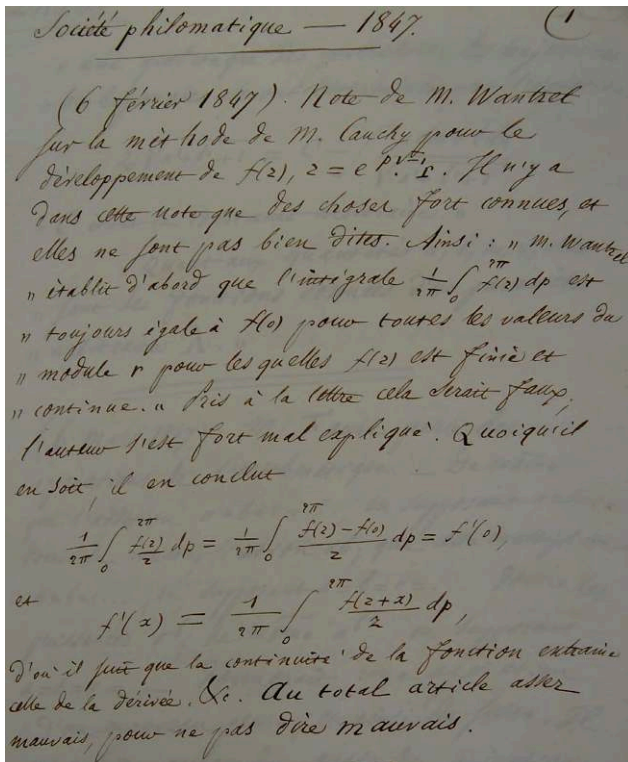 Société philomatique — 1847. (1
(6 février 1847). Note de M. Wantzel
sur la méthode de M. Cauchy pour le
développement de f(z), z = e^{p√-1}. r. Il n'y a
dans cette note que des choses fort connues, et
elles ne sont pas bien dites. Ainsi : „ M. Wantzel
„ établit d'abord que l'intégrale 1/2π ∫₀^{2π} f(z) dp est
„ toujours égale à f(0) pour toutes les valeurs du
„ module r pour lesquelles f(z) est finie et
„ continue. „ Pris à la lettre cela serait faux,
l'auteur s'est fort mal expliqué. Quoiqu'il
en soit, il en conclut
1/2π ∫₀^{2π} f(z)/z dp = 1/2π ∫₀^{2π} (f(z) – f(0))/z dp = f'(0),
et
f'(x) = 1/2π ∫₀^{2π} f(z+x)/z dp,
d'où il suit que la continuité de la fonction entraine
celle de la dérivée. &c. Au total article assez
mauvais, pour ne pas dire mauvais.